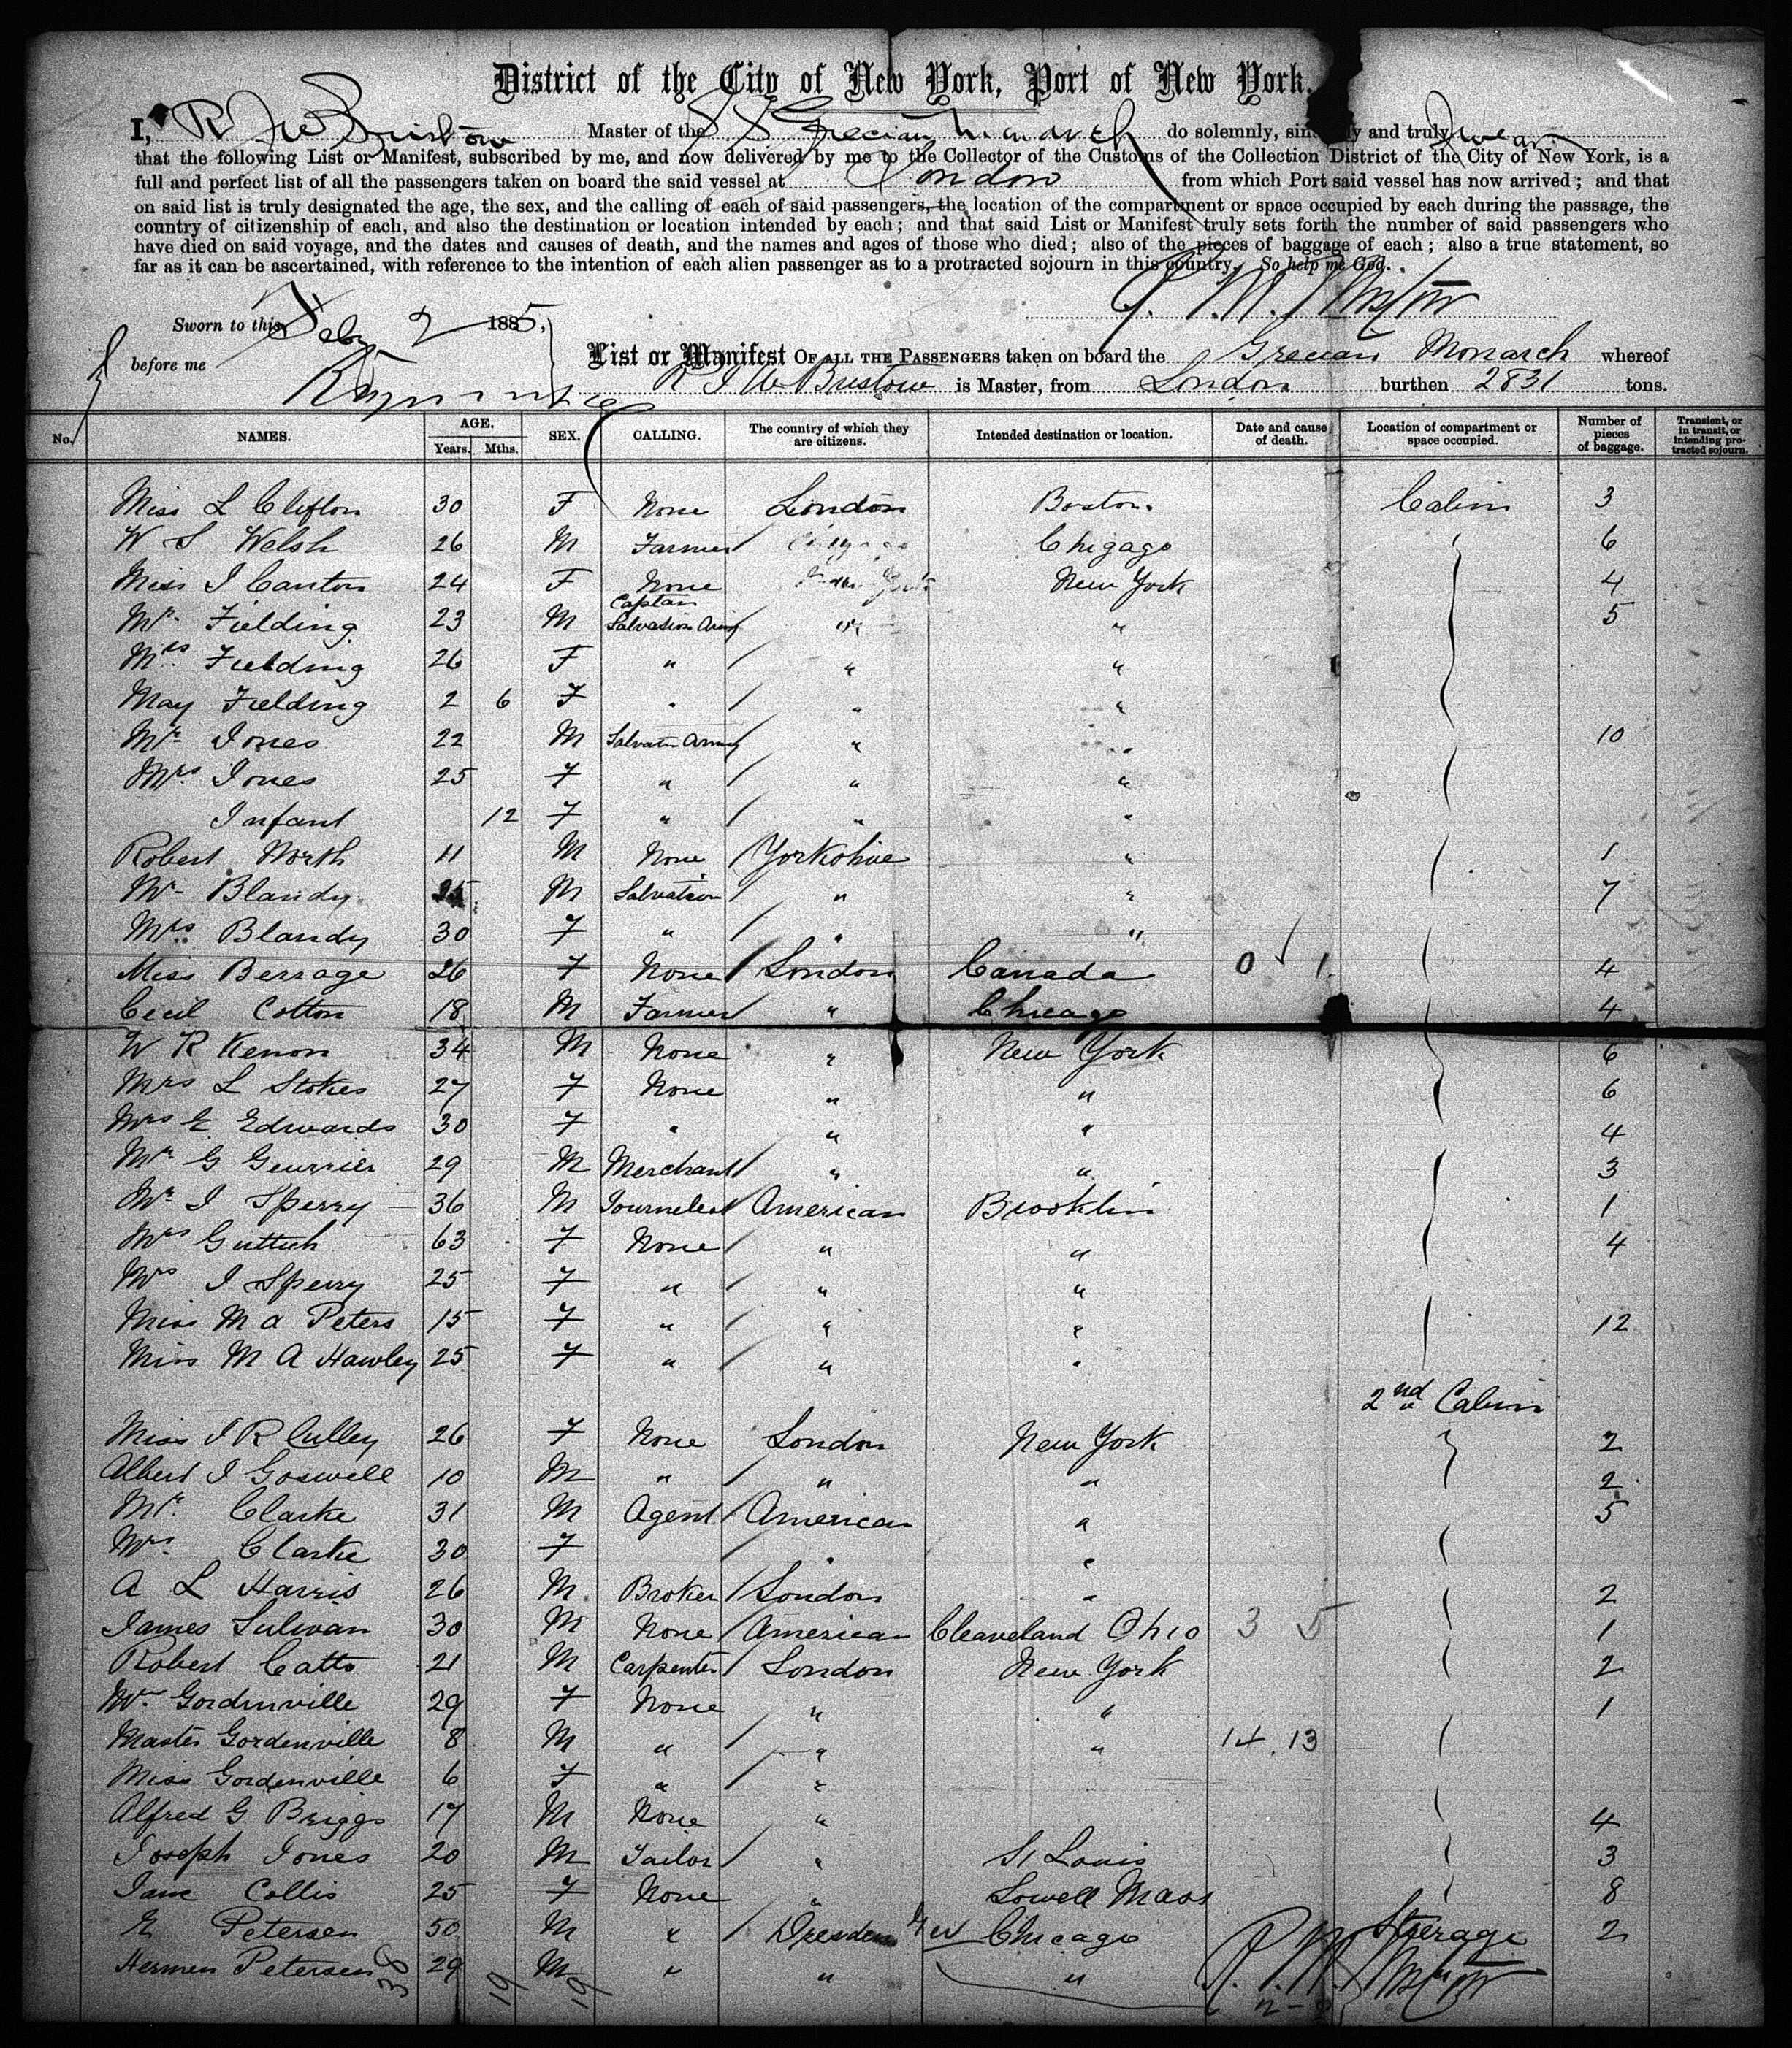 District of the City of New York, Port of New York.
I, R J W Bristow Master of the S S Grecian Monarch do solemnly, sincerely and truly swear
that the following List or Manifest, subscribed by me, and now delivered by me to the Collector of the Customs of the Collection District of the City of New York, is a
full and perfect list of all the passengers taken on board the said vessel at London from which Port said vessel has now arrived; and that
on said list is truly designated the age, the sex, and the calling of each of said passengers, the location of the compartment or space occupied by each during the passage, the
country of citizenship of each, and also the destination or location intended by each; and that said List or Manifest truly sets forth the number of said passengers who
have died on said voyage, and the dates and causes of death, and the names and ages of those who died; also of the pieces of baggage of each; also a true statement, so
far as it can be ascertained, with reference to the intention of each alien passenger as to a protracted sojourn in this country. So help me God.
Sworn to this Feby 2 1885.
before me
List or Manifest OF ALL THE PASSENGERS taken on board the Grecian Monarch whereof
R J W Bristow is Master, from London burthen 2831 tons.
No. NAMES. AGE. Years. Mths. SEX. CALLING. The country of which they are citizens. Intended destination or location. Date and cause of death. Location of compartment or space occupied. Number of pieces of baggage. Transient, or in transit, or intending protracted sojourn.
Miss L Clifton 30 F None London Boston. Cabin 3
W S Welsh 26 M Farmer Chigago 6
Miss J Canton 24 F None New York 4
Mr Fielding 23 M Captan Salvation Army " " 5
Mrs Fielding 26 F " " "
May Fielding 2 6 F " " "
Mr Jones 22 M Salvatn Army " " 10
Mrs Jones 25 F " " "
Infant 12 F " " "
Robert North 11 M None Yorkshire " 1
Mr Blandy M Salvation " " 7
Mrs Blandy 30 F " " "
Miss Berrage 26 F None London Canada 0 1 4
Cecil Cotton 18 M Farmer " Chicago 4
W R Kenon 34 M None " New York 6
Mrs L Stokes 27 F None " " 6
Mrs E Edwards 30 F " " " 4
Mr G Geurrier 29 M Merchant " " 3
Mr J Sperry 36 M Journelest American Brooklin 1
Mrs Guttich 63 F None " " 4
Mrs J Sperry 25 F " " "
Miss M A Peters 15 F " " " 12
Miss M A Hawley 25 F " " "
2nd Cabin
Miss J R Culley 26 F None London New York 2
Albert J Goswell 10 M " " " 2
Mr. Clarke 31 M Agent American " 5
Mrs Clarke 30 F " "
A L Harris 26 M Broker London " 2
James Sulivan 30 M None American Cleaveland Ohio 3 5 1
Robert Catts 21 M Carpenter London New York 2
Mrs Gordenville 29 F None " " 1
Master Gordenville 8 M " " " 14. 13
Miss Gordenville 6 F " "
Alfred G Briggs 17 M None " 4
Joseph Jones 20 M Tailor " St Louis 3
Jane Collis 25 F None " Lowell Mass 8
E Petersen 50 M " Dresden Ger Chicago Steerage 2
Hermen Petersen 29 M " " "
38 19 19